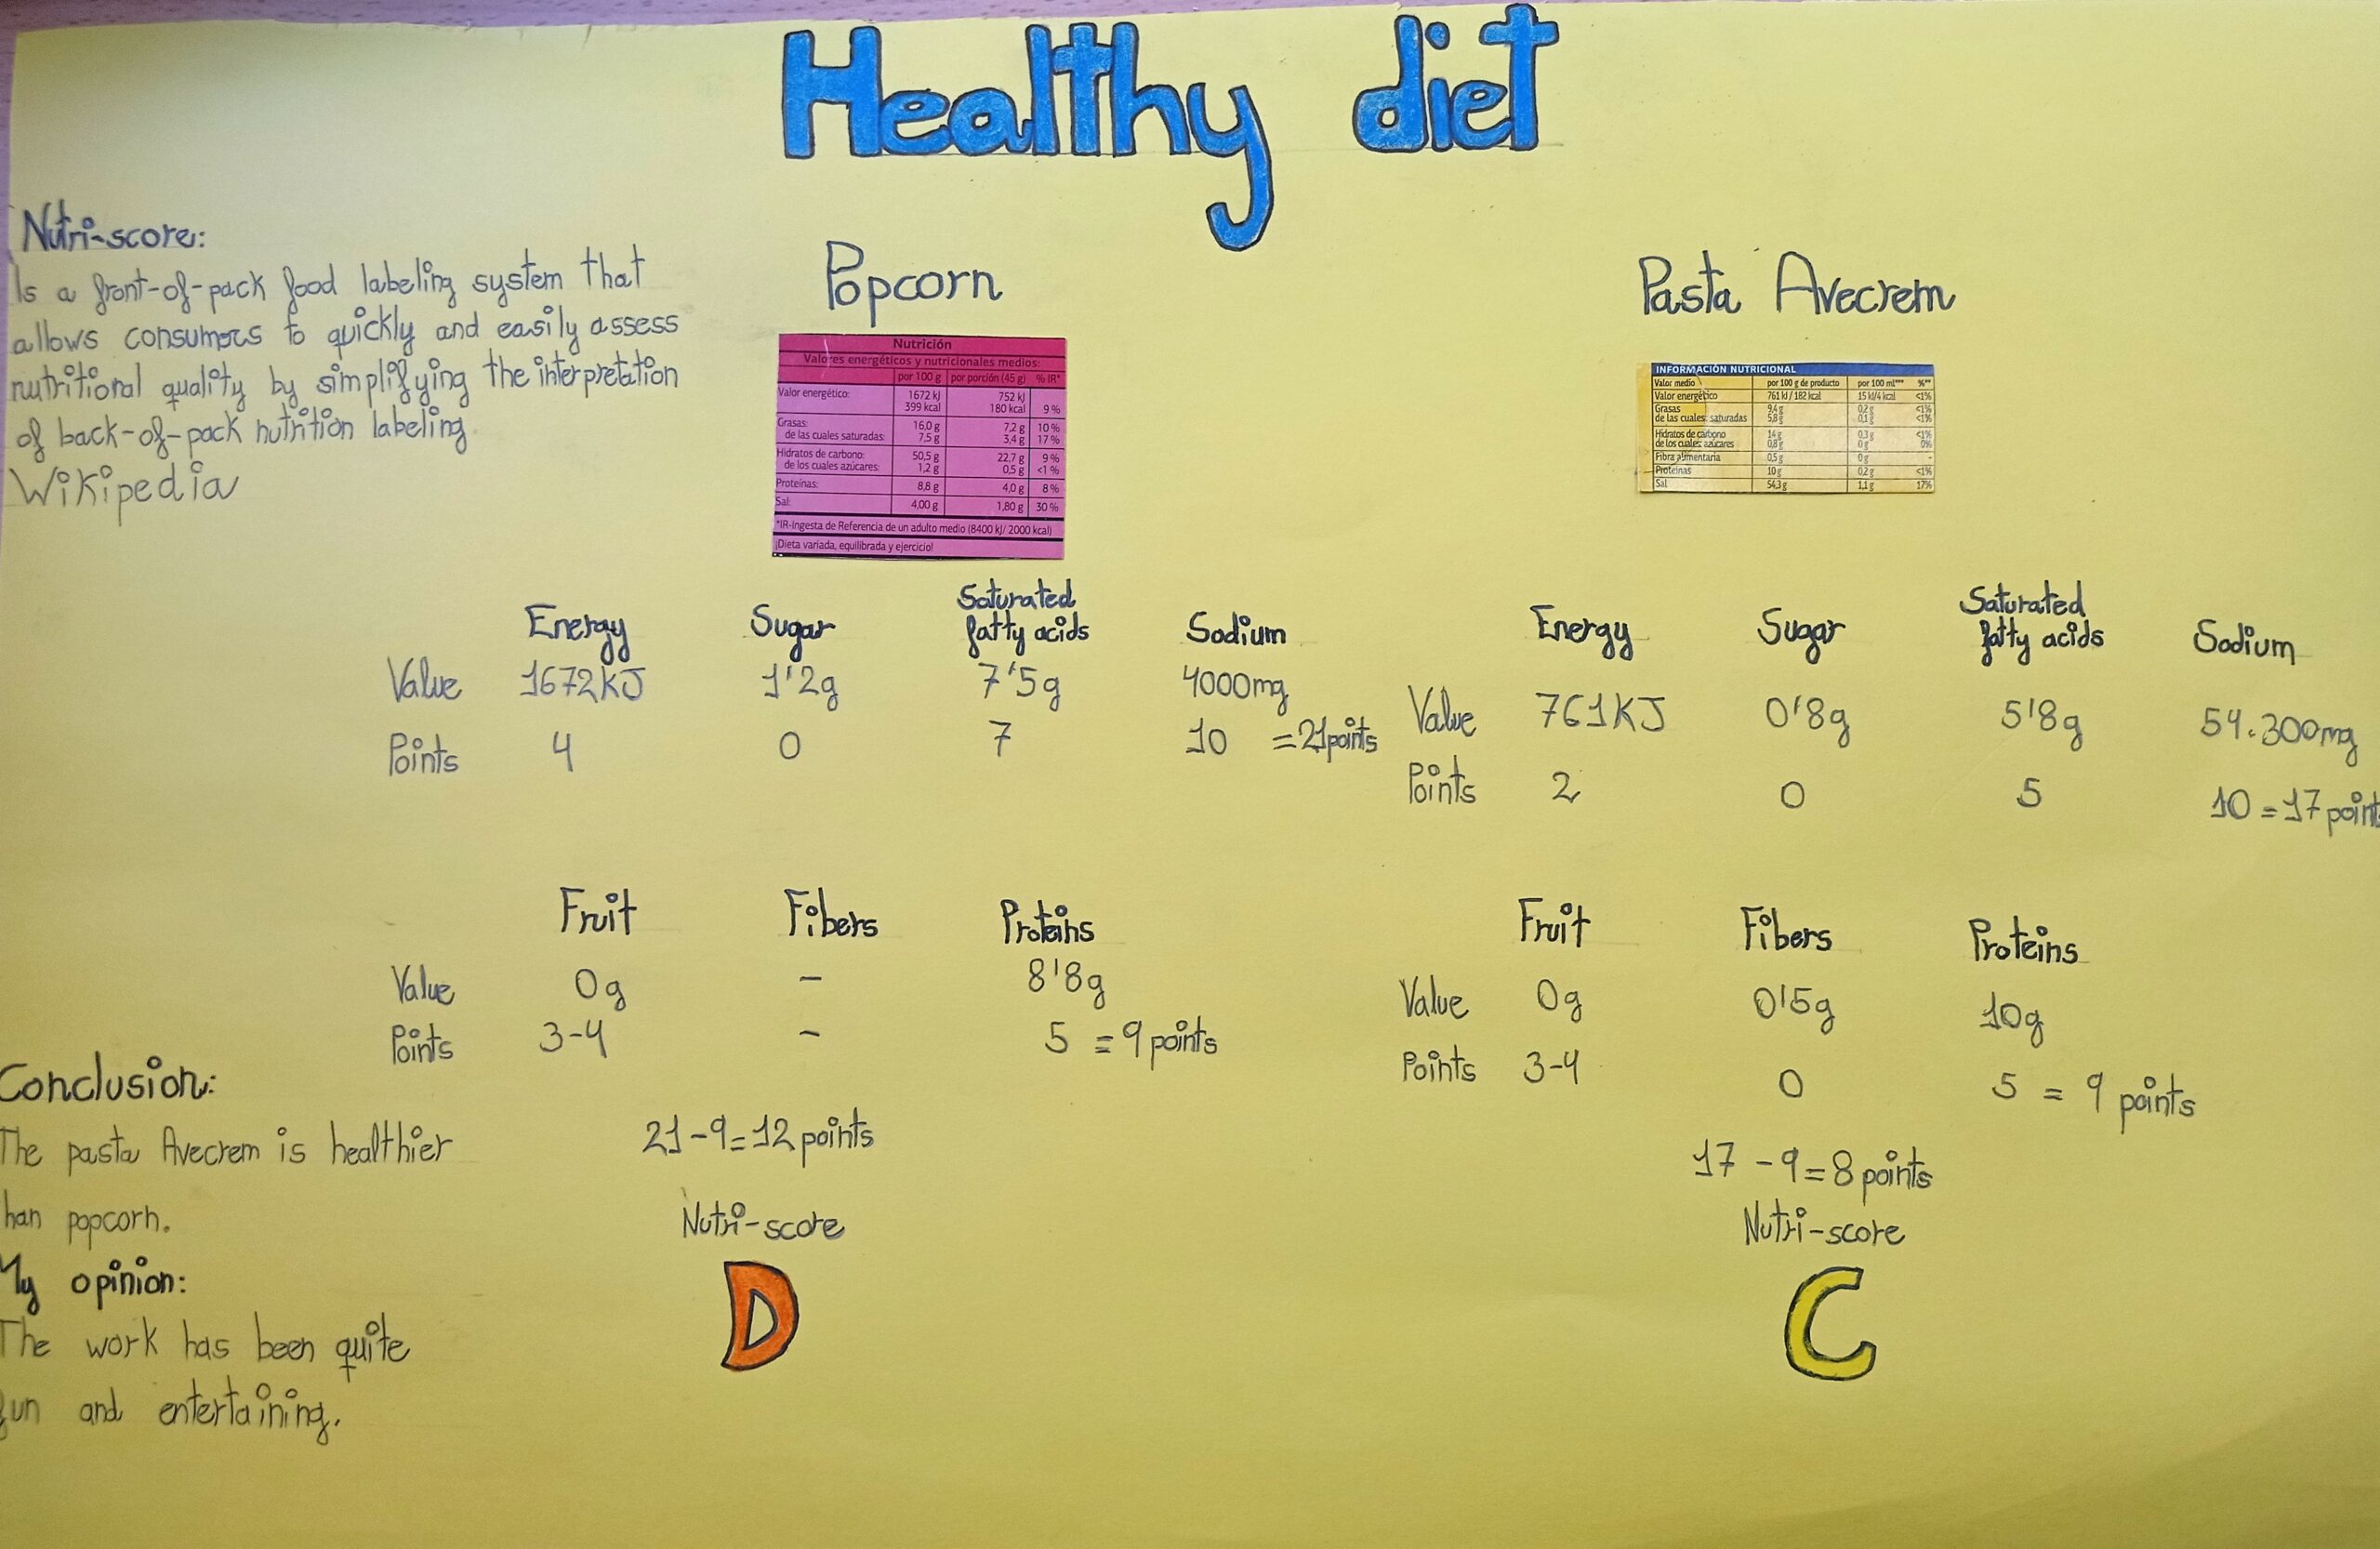 Healthy diet
Nutri-score:
Is a front-of-pack food labeling system that
allows consumers to quickly and easily assess
nutritional quality by simplifying the interpretation
of back-of-pack nutrition labeling.
Wikipedia
Popcorn
Nutrición
Valores energéticos y nutricionales medios:
por 100 g por porción (45 g) % IR*
Valor energético: 1672 kJ 752 kJ
399 kcal 180 kcal 9 %
Grasas: 16,0 g 7,2 g 10 %
de las cuales saturadas: 7,5 g 3,4 g 17 %
Hidratos de carbono: 50,5 g 22,7 g 9 %
de los cuales azúcares: 1,2 g 0,5 g <1 %
Proteínas: 8,8 g 4,0 g 8 %
Sal: 4,00 g 1,80 g 30 %
*IR-Ingesta de Referencia de un adulto medio (8400 kJ/ 2000 kcal)
¡Dieta variada, equilibrada y ejercicio!
Energy Sugar Saturated fatty acids Sodium
Value 1672KJ 1'2g 7'5g 4000mg
Points 4 0 7 10 =21points
Fruit Fibers Proteins
Value 0g - 8'8g
Points 3-4 - 5 = 9 points
21-9=12 points
Nutri-score
D
Pasta Avecrem
INFORMACIÓN NUTRICIONAL
Valor medio por 100 g de producto por 100 ml*** %**
Valor energético 761 kJ / 182 kcal 15 kJ/4 kcal <1%
Grasas 9,4 g 0,2 g <1%
de las cuales: saturadas 5,8 g 0,1 g <1%
Hidratos de carbono 14 g 0,3 g <1%
de los cuales: azúcares 0,8 g 0 g 0%
Fibra alimentaria 0,5 g 0 g -
Proteínas 10 g 0,2 g <1%
Sal 54,3 g 1,1 g 17%
Energy Sugar Saturated fatty acids Sodium
Value 761KJ 0'8g 5'8g 54.300mg
Points 2 0 5 10 = 17 point
Fruit Fibers Proteins
Value 0g 0'5g 10g
Points 3-4 0 5 = 9 points
17 - 9 = 8 points
Nutri-score
C
Conclusion:
The pasta Avecrem is healthier
han popcorn.
My opinion:
The work has been quite
fun and entertaining.